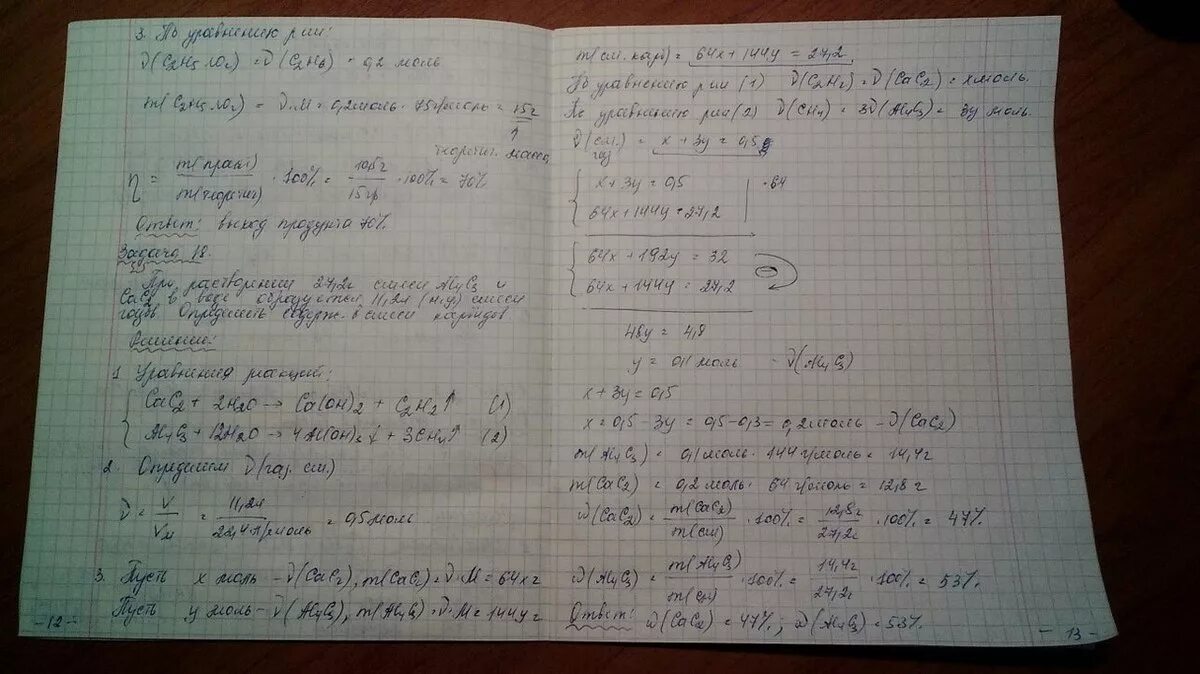 3. По уравнению р-ии:
ν(C2H5NO2) = ν(C2H6) = 0,2 моль
m(C2H5NO2) = ν·M = 0,2моль · 75г/моль = 15г
↑
теоретич. масса
η = m(практ)/m(теоретич) · 100% = 10,5г/15гр · 100% = 70%
Ответ: выход продукта 70%.
Задача 18.
При растворении 27,2г смеси Al4C3 и
CaC2 в воде образуется 11,2л (н.у) смеси
газов. Определить содерж. в смеси карбидов
Решение:
1 Уравнения реакций:
CaC2 + 2H2O → Ca(OH)2 + C2H2↑ (1)
Al4C3 + 12H2O → 4Al(OH)3↓ + 3CH4↑ (2)
2. Определим ν(газ. см.)
ν = V/Vм = 11,2л/22,4л/моль = 0,5моль
3. Пусть x моль – ν(CaC2), m(CaC2) = ν·M = 64x г
Пусть y моль – ν(Al4C3), m(Al4C3) = ν·M = 144y г
-12-
m(см. карб) = 64x + 144y = 27,2
По уравнению р-ии (1) ν(C2H2) = ν(CaC2) = x моль.
По уравнению р-ии (2) ν(CH4) = 3ν(Al4C3) = 3y моль.
ν(см. газ) = x + 3y = 0,5
x + 3y = 0,5 | ·64
64x + 144y = 27,2
64x + 192y = 32
64x + 144y = 27,2
48y = 4,8
y = 0,1 моль – ν(Al4C3)
x + 3y = 0,5
x = 0,5 – 3y = 0,5 – 0,3 = 0,2моль – ν(CaC2)
m(Al4C3) = 0,1моль · 144г/моль = 14,4г
m(CaC2) = 0,2 моль · 64 г/моль = 12,8 г
ω(CaC2) = m(CaC2)/m(см) · 100% = 12,8г/27,2г · 100% = 47%
ω(Al4C3) = m(Al4C3)/m(см) · 100% = 14,4г/27,2г · 100% = 53%
Ответ: ω(CaC2) = 47%; ω(Al4C3) = 53%
- 13 -